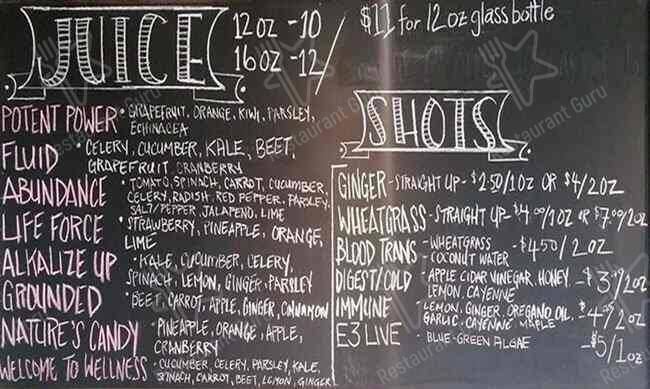 JUICE
12OZ - 10
16OZ - 12
$11 for 12oz glass bottle
POTENT POWER • GRAPEFRUIT, ORANGE, KIWI, PARSLEY,
ECHINACEA
FLUID • CELERY, CUCUMBER, KALE, BEET,
GRAPEFRUIT, CRANBERRY
ABUNDANCE • TOMATO, SPINACH, CARROT, CUCUMBER,
CELERY, RADISH, RED PEPPER, PARSLEY,
SALT/PEPPER, JALAPENO, LIME
LIFE FORCE • STRAWBERRY, PINEAPPLE, ORANGE,
LIME
ALKALIZE UP • KALE, CUCUMBER, CELERY,
SPINACH, LEMON, GINGER, PARSLEY
GROUNDED • BEET, CARROT, APPLE, GINGER, CINNAMON
NATURE'S CANDY • PINEAPPLE, ORANGE, APPLE,
CRANBERRY
WELCOME TO WELLNESS • CUCUMBER, CELERY, PARSLEY, KALE,
SPINACH, CARROT, BEET, LEMON, GINGER
SHOTS
GINGER - STRAIGHT UP - $2.50/1OZ OR $4/2OZ
WHEATGRASS - STRAIGHT UP - $4.00/1OZ OR $7.00/2OZ
BLOOD TRANS - WHEATGRASS - $4.50/2OZ
COCONUT WATER
DIGEST/COLD - APPLE CIDAR VINEGAR, HONEY, - $3/2OZ
LEMON, CAYENNE
IMMUNE - LEMON, GINGER, OREGANO OIL, - $4.25/2OZ
GARLIC, CAYENNE, MAPLE
E3 LIVE - BLUE-GREEN ALGAE - $5/1OZ
Restaurant Guru